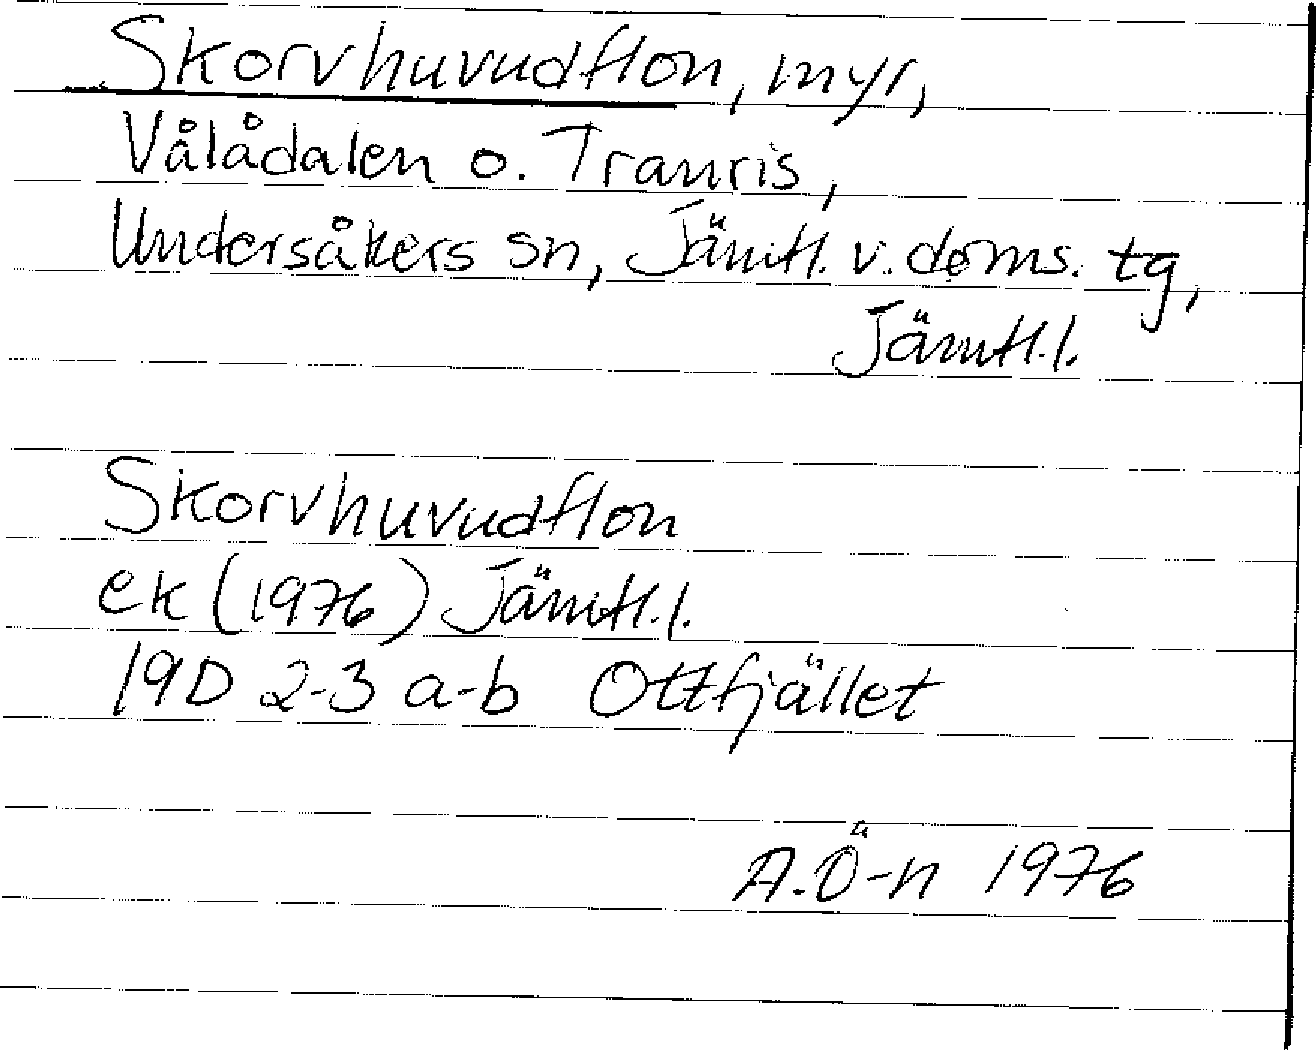 Skorvhuvudflon, myr,
Vålådalen o. Tranris,
Undersåkers sn, Jämtl. v. doms. tg,
Jämtl.l.
Skorvhuvudflon
ek (1976) Jämtl.l.
19D 2-3 a-b Ottfjället
A.Ö-n 1976